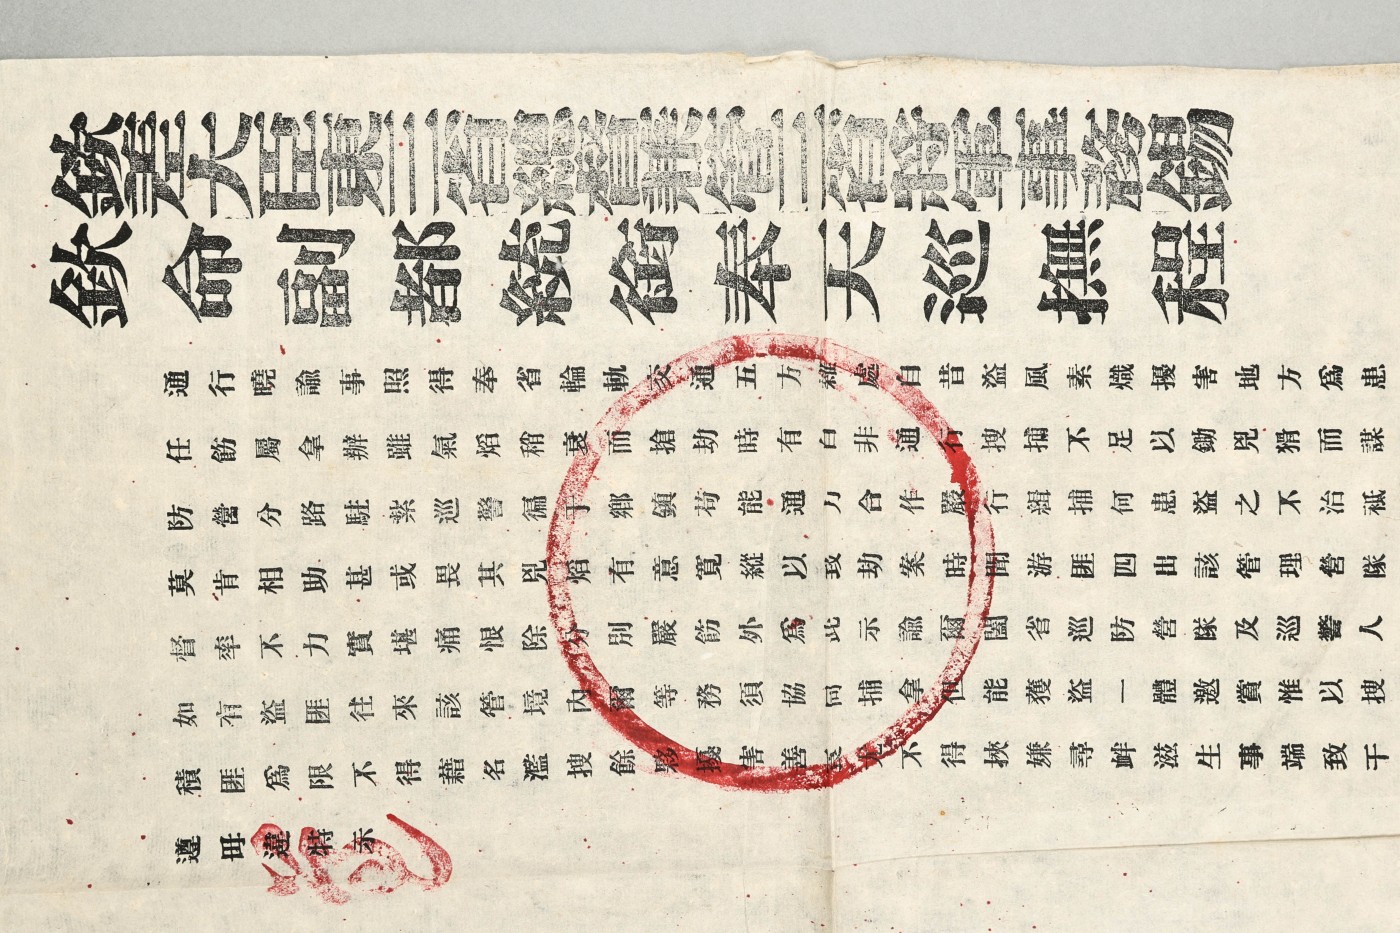 欽差大臣東三省總督兼管三省將軍事務錫
欽命副都統銜奉天巡撫程
通行曉諭事照得奉省輪軌交通五方雜處自昔盜風素熾擾害地方爲患
任飭屬拿辦雖氣焰稍衰而搶劫時有自非通行搜捕不足以鋤兇猾而謀
防營分路駐紮巡警徧于鄉鎮苟能通力合作嚴行緝捕何患盜之不治祗
莫肯相助甚或畏其兇焰有意寬縱以致劫案時聞游匪四出該管理營隊
督率不力實堪痛恨除分別嚴飭外爲此示諭爾闔省巡防營隊及巡警人
如有盜匪往來該管境內爾等務須協同捕拿但能獲盜一體邀賞惟以搜
積匪爲限不得藉名濫搜餘夥擾害善良尤不得挾嫌尋衅滋生事端致干
遵毋違特示